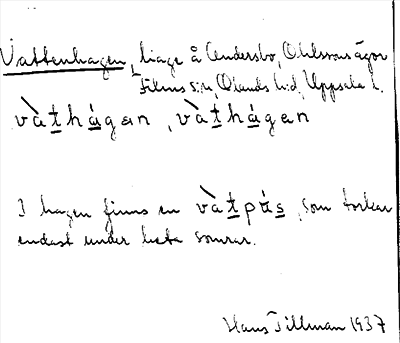 Vattenhagen, hage å Andersbo, Ohlssons ägor
Films s:n, Olands h:d, Uppsala l.
và̀thágan, và̀thágan
I hagen finns en và̀tpús, som torkar
endast under heta somrar.
Hans Tillman 1937